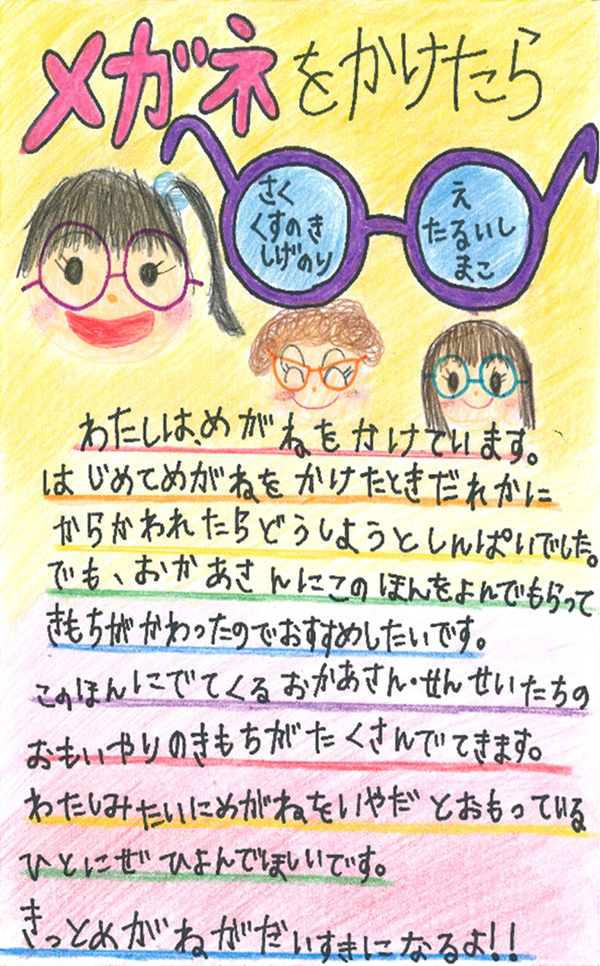 メガネをかけたら
さく
くすのき
しげのり
え
たるいし
まこ
わたしは、めがねをかけています。
はじめてめがねを かけたときだれかに
からかわれたらどうしようとしんぱいでした。
でも、おかあさんにこのほんをよんでもらって
きもちがかわったのでおすすめしたいです。
このほんにでてくるおかあさん・せんせいたちの
おもいやりのきもちがたくさんでてきます。
わたしみたいにめがねをいやだとおもっている
ひとにぜひよんでほしいです。
きっとめがねがだいすきになるよ!!